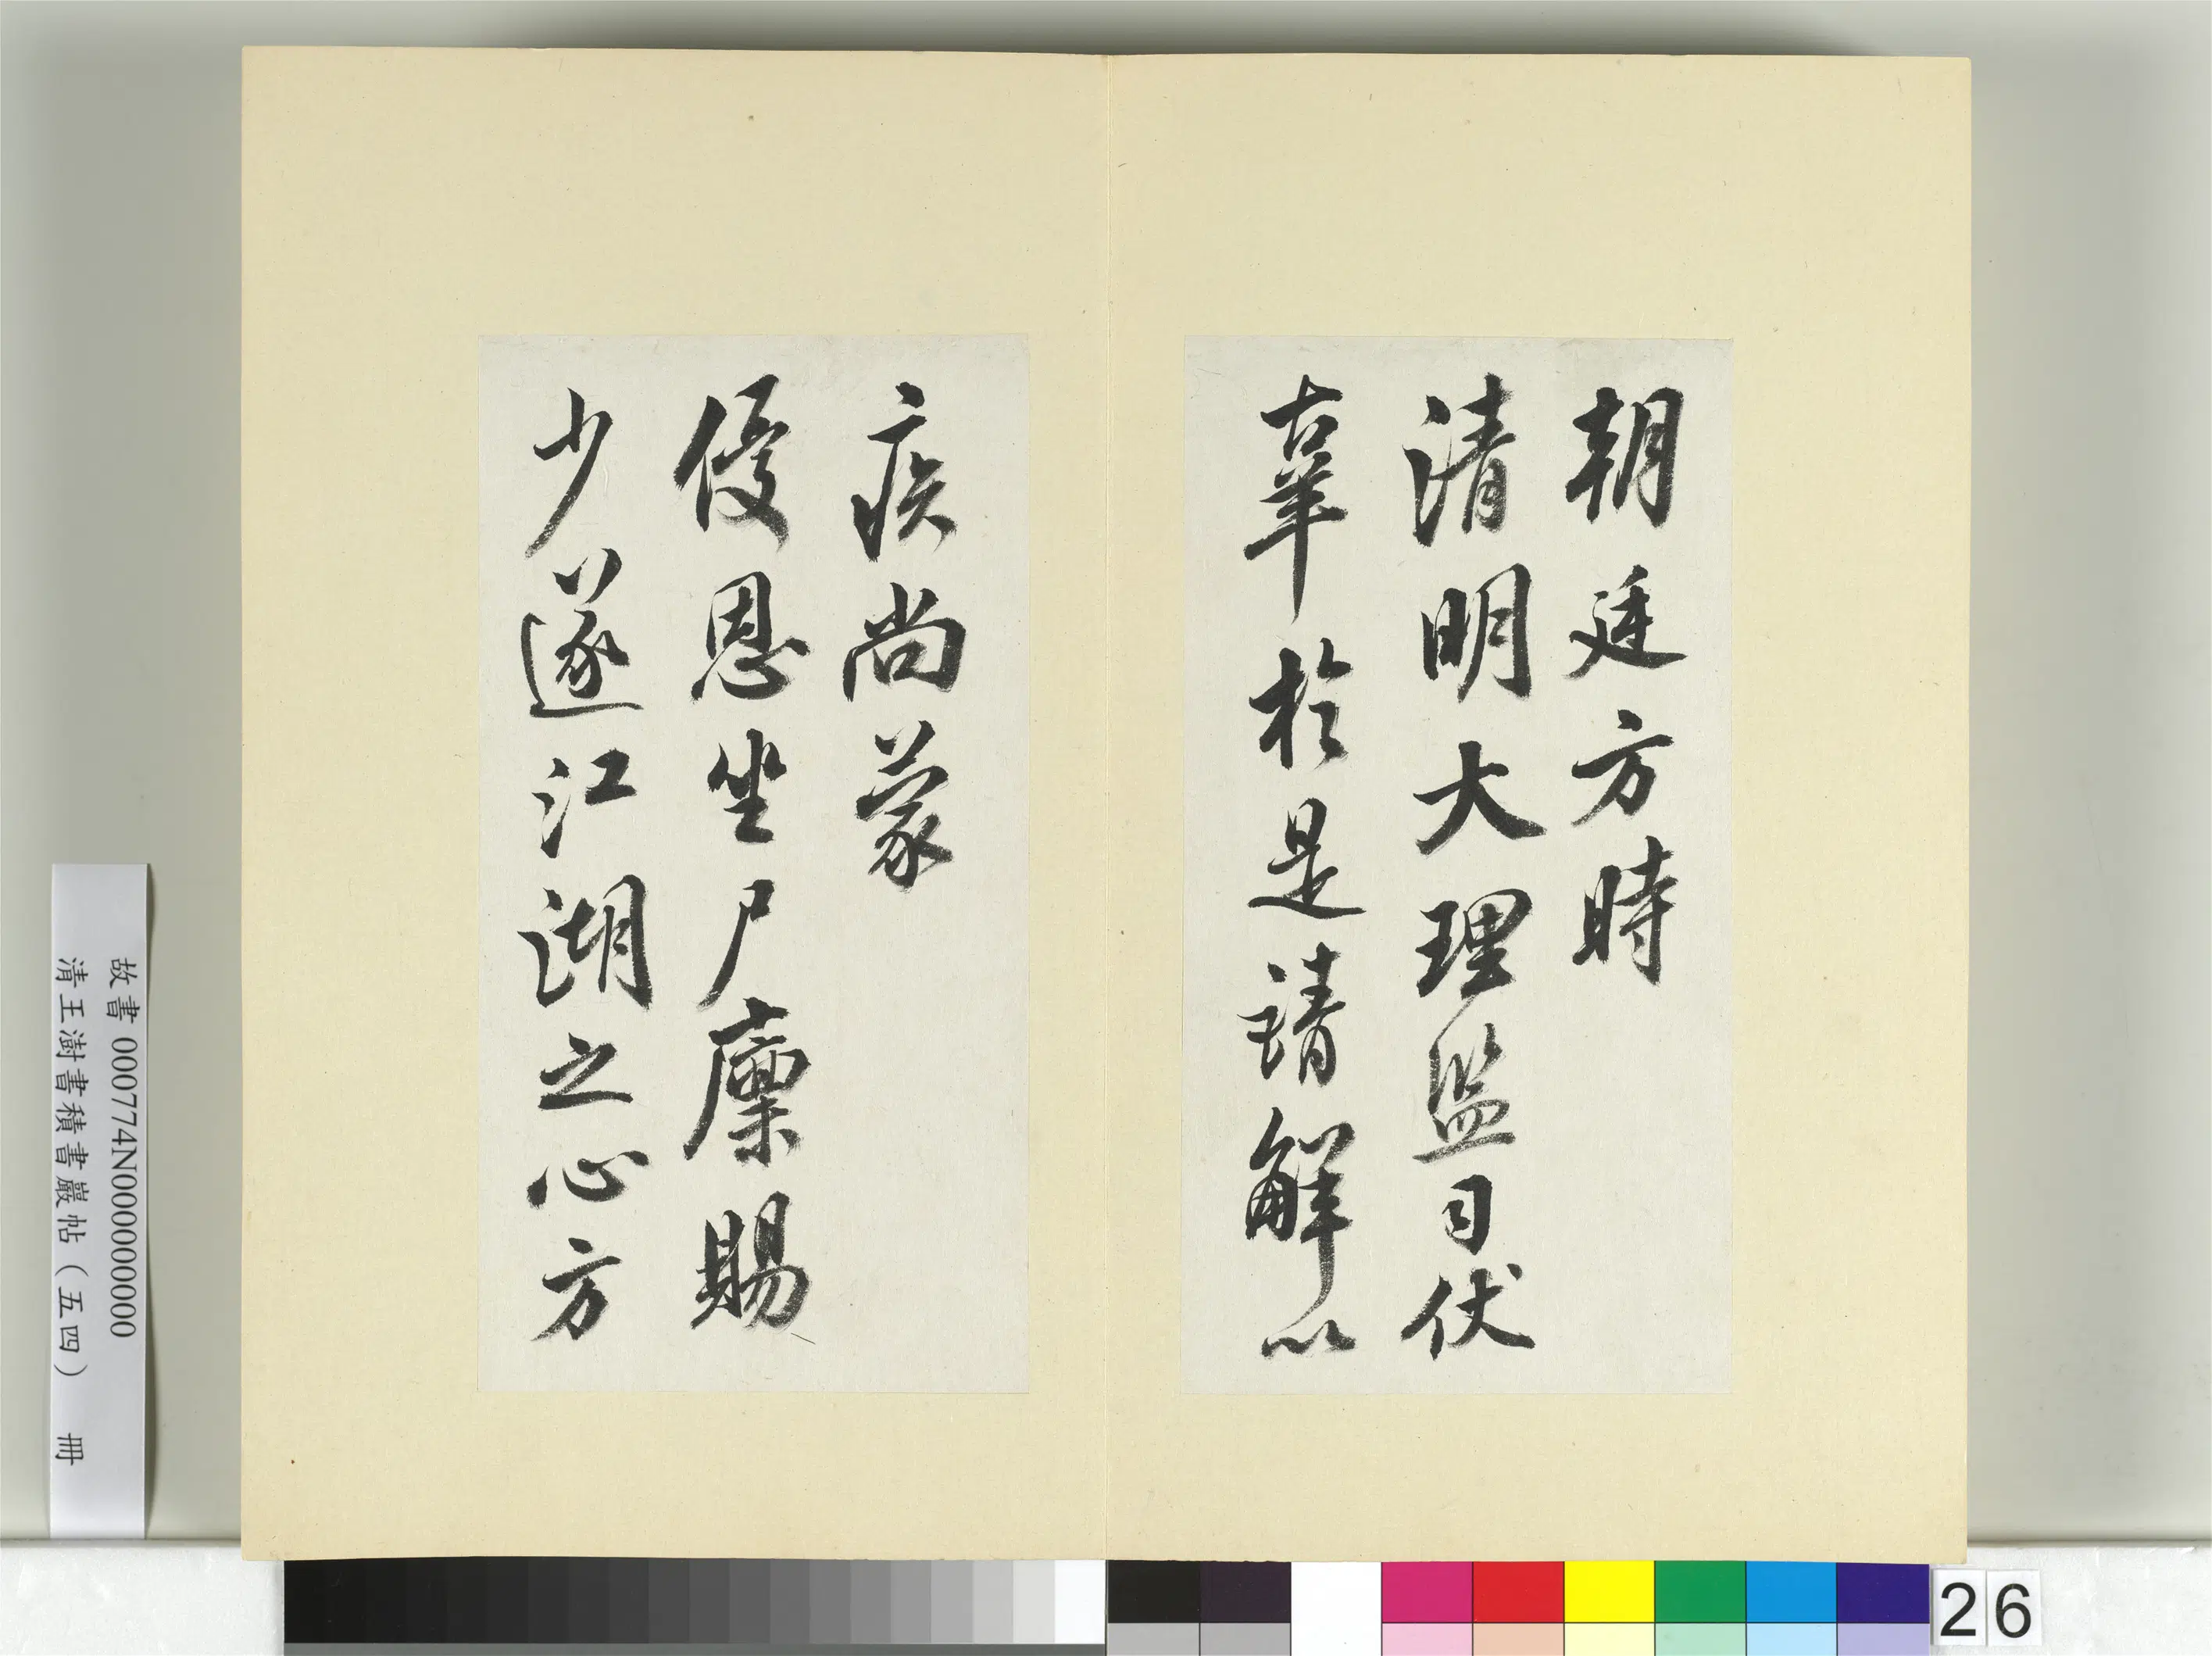 朝廷方時
清明大理監司伏
辜於是請解以
疾尚蒙
優恩坐尸廩賜
少遂江湖之心方
故書 000774N000000000
清王澍書積書巖帖（五四） 冊
26